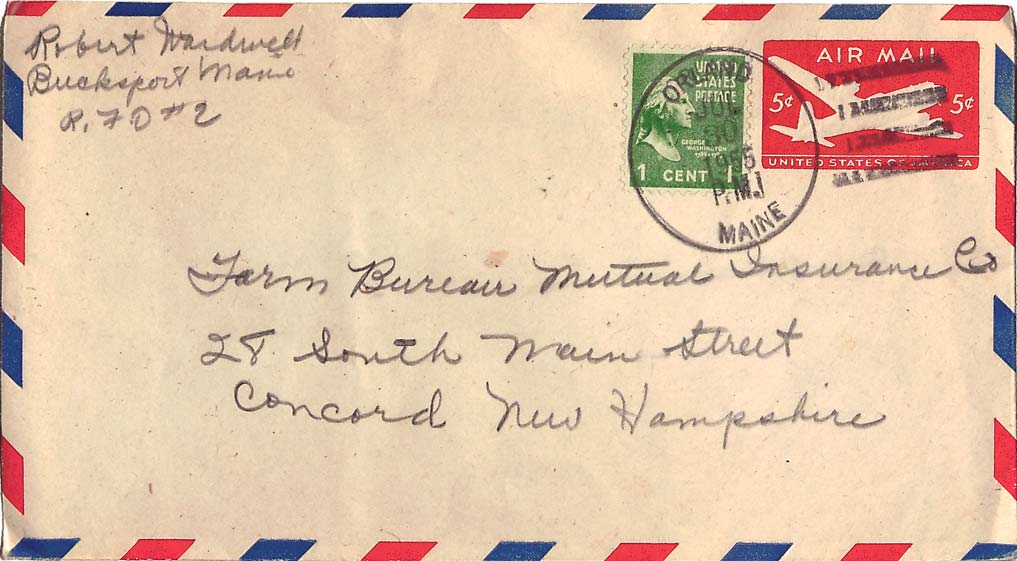 Robert Wardwell
Bucksport Maine
R. F D #2
UNITED
STATES
POSTAGE
GEORGE
WASHINGTON
1 CENT 1
ORLAND
JUL
30
1955
P.M.
MAINE
AIR MAIL
5¢ 5¢
UNITED STATES OF AMERICA
Farm Bureau Mutual Insurance Co
28 South Main Street
Concord New Hampshire